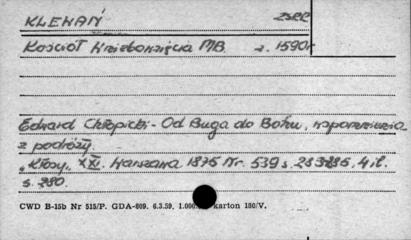 KLEWAŃ ZSRR
Kościół Wniebowzięcia MB z. 1590r
Edward Chłopicki - Od Buga do Bohu, wspomnienia
z podróży.
"Kłosy" XXI. Warszawa 1875 Nr. 539 s. 283-286, 4 il.
s. 280.
CWD B-15b Nr 515/P. GDA-809. 6.3.59. 1.000. karton 180/V.